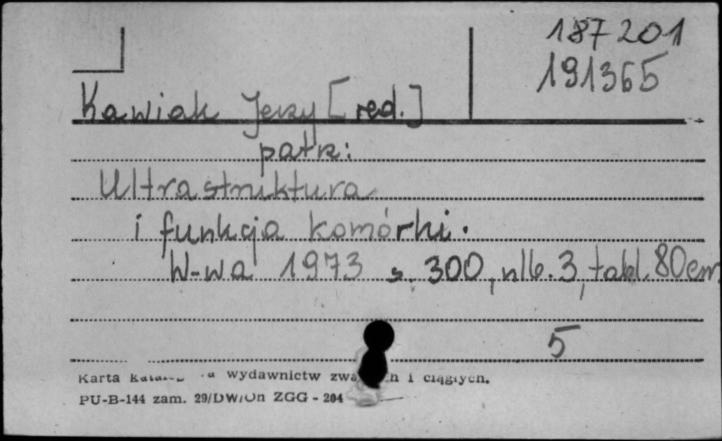 187201
191365
Kawiak Jerzy [red.]
patrz:
Ultrastruktura
i funkcja komórki.
W-wa 1973 s. 300, nlb. 3, tabl. 80
5
Karta wydawnictw i ciągłych.
PU-B-144 zam. 29/DW/On ZGG - 204